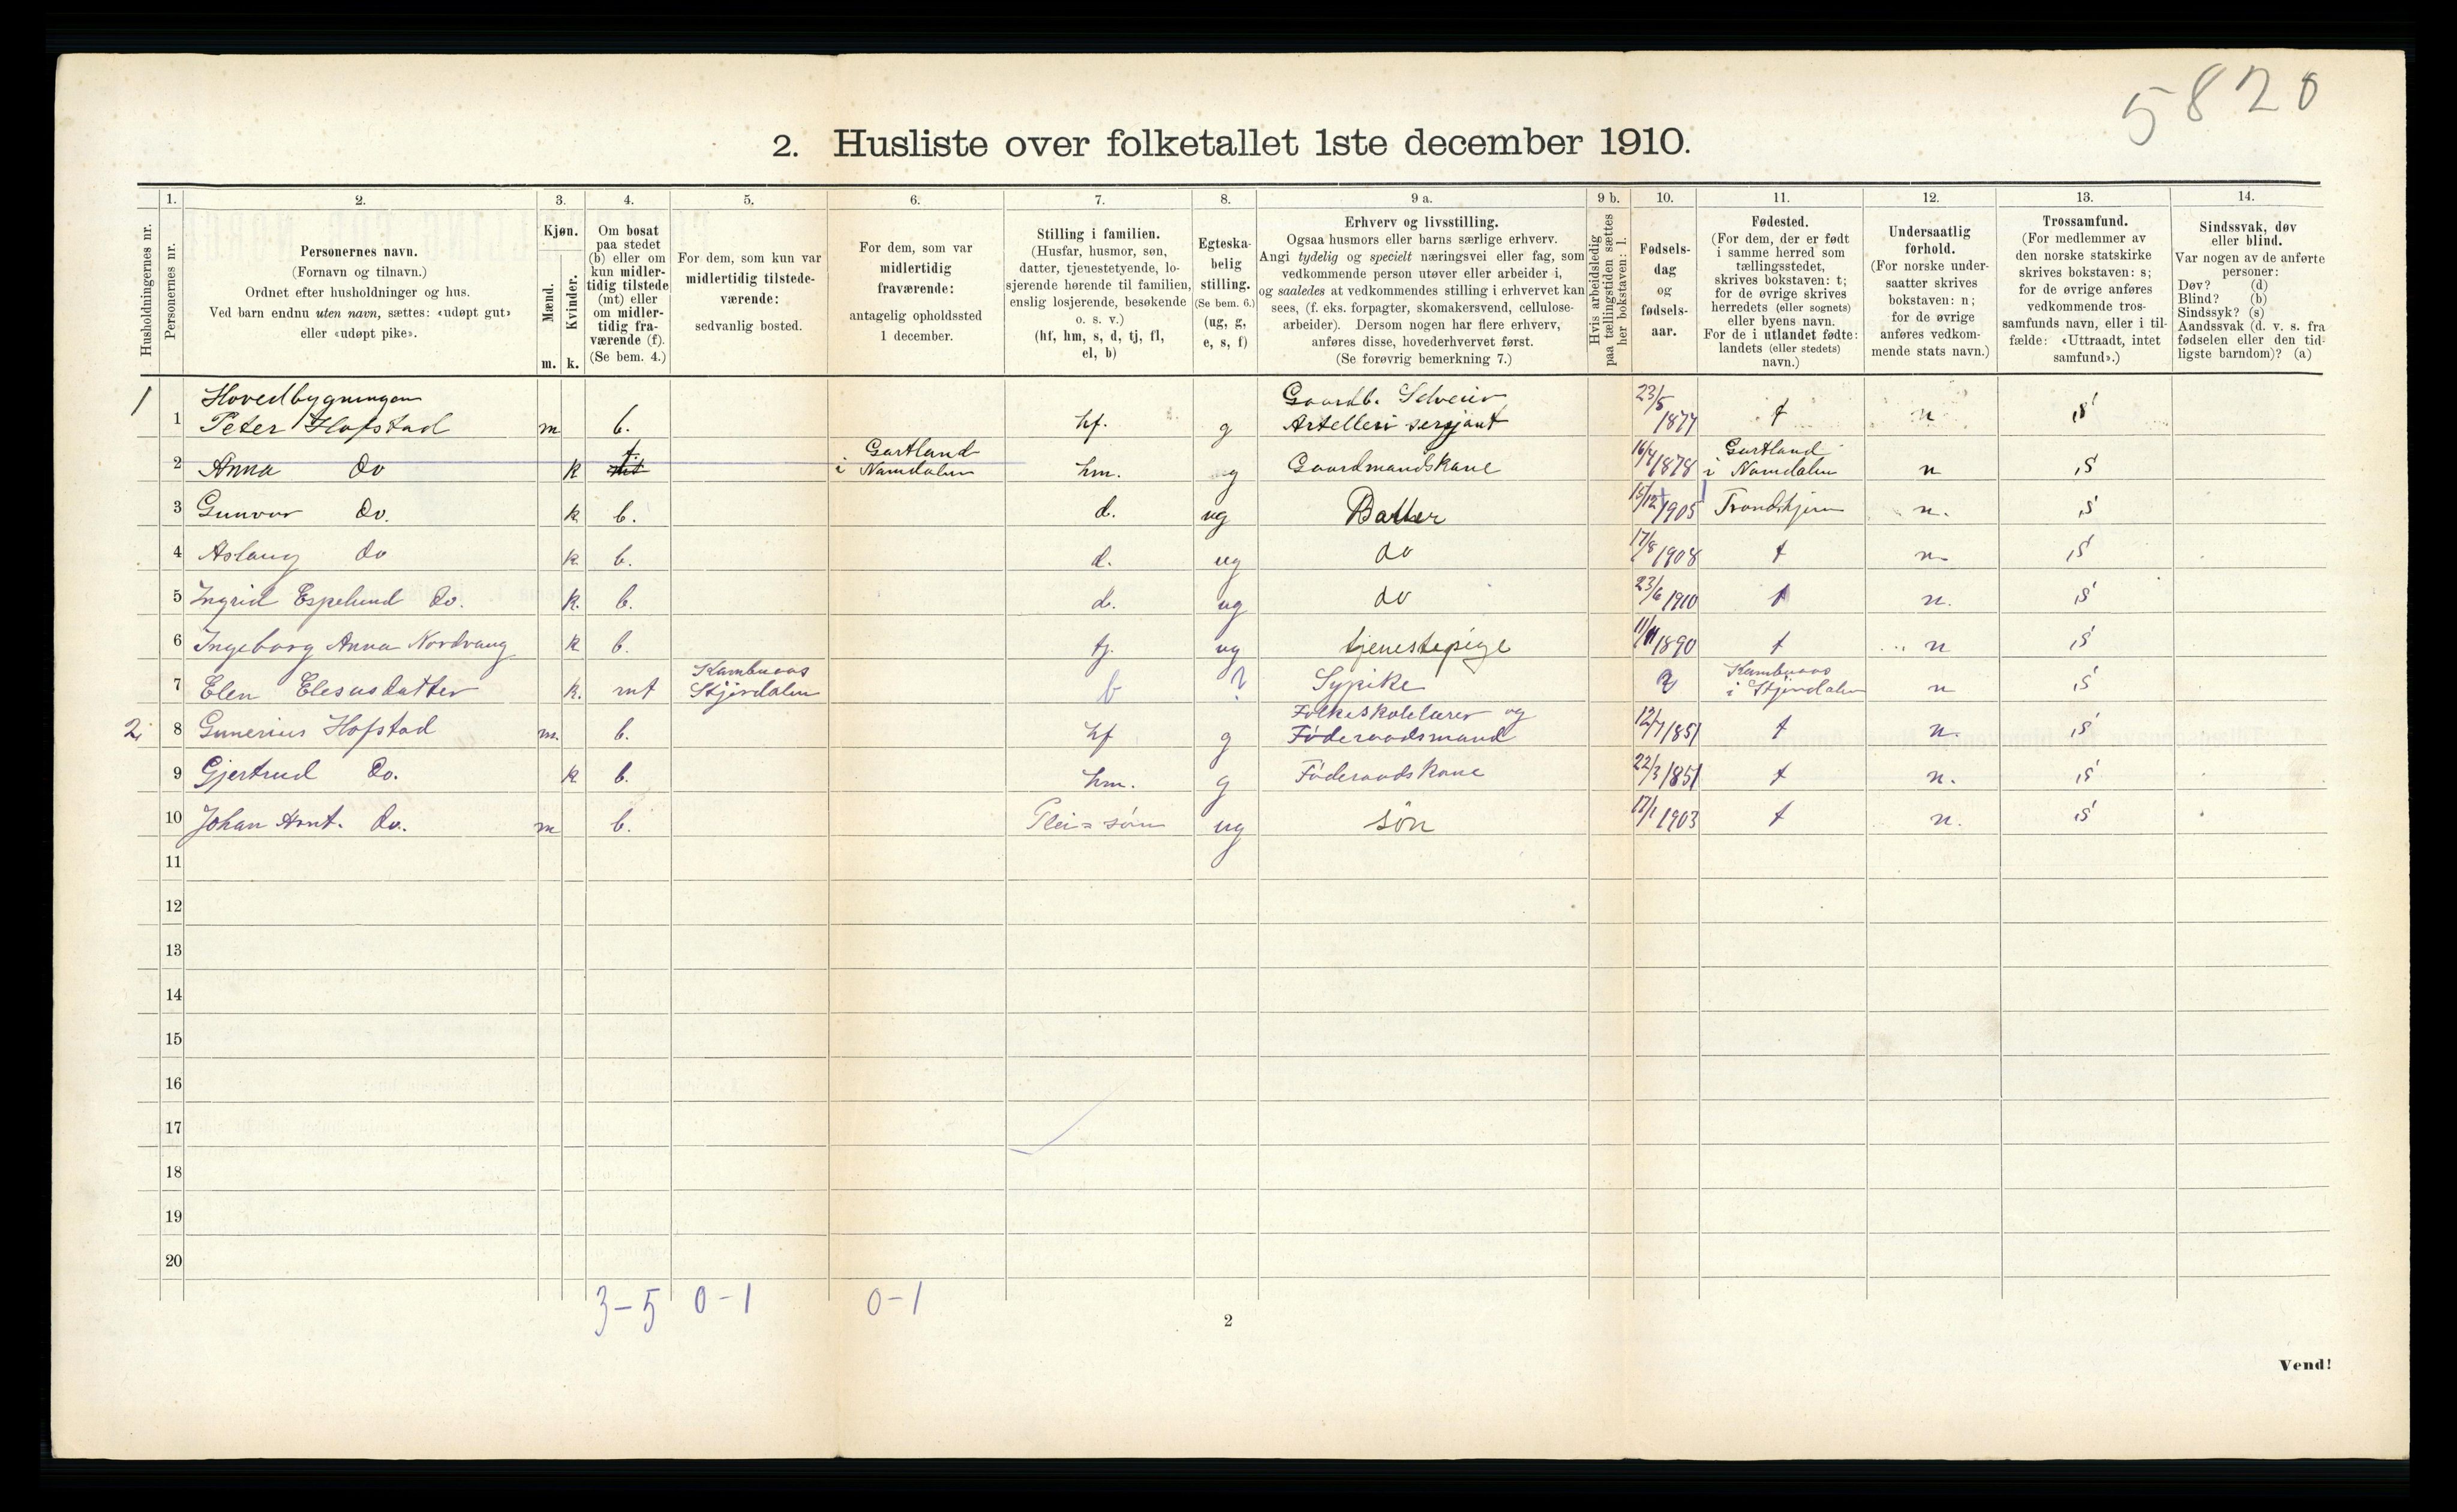 5820
2. Husliste over folketallet 1ste december 1910.
Husholdningernes nr.
1.
Personernes nr.
2.
Personernes navn.
(Fornavn og tilnavn.)
Ordnet efter husholdninger og hus.
Ved barn endnu uten navn, sættes: «udøpt gut»
eller «udøpt pike».
3.
Kjøn.
Mænd.
Kvinder.
m. k.
4.
Om bosat
paa stedet
(b) eller om
kun midler-
tidig tilstede
(mt) eller
om midler-
tidig fra-
værende (f).
(Se bem. 4.)
5.
For dem, som kun var
midlertidig tilstede-
værende:
sedvanlig bosted.
6.
For dem, som var
midlertidig
fraværende:
antagelig opholdssted
1 december.
7.
Stilling i familien.
(Husfar, husmor, søn,
datter, tjenestetyende, lo-
sjerende hørende til familien,
enslig losjerende, besøkende
o. s. v.)
(hf, hm, s, d, tj, fl,
el, b)
8.
Egteska-
belig
stilling.
(Se bem. 6.)
(ug, g,
e, s, f)
9 a.
Erhverv og livsstilling.
Ogsaa husmors eller barns særlige erhverv.
Angi tydelig og specielt næringsvei eller fag, som
vedkommende person utøver eller arbeider i,
og saaledes at vedkommendes stilling i erhvervet kan
sees, (f. eks. forpagter, skomakersvend, cellulose-
arbeider). Dersom nogen har flere erhverv,
anføres disse, hovederhvervet først.
(Se forøvrig bemerkning 7.)
9 b.
Hvis arbeidsledig
paa tællingstiden sættes
her bokstaven: l.
10.
Fødsels-
dag
og
fødsels-
aar.
11.
Fødested.
(For dem, der er født
i samme herred som
tællingsstedet,
skrives bokstaven: t;
for de øvrige skrives
herredets (eller sognets)
eller byens navn.
For de i utlandet fødte:
landets (eller stedets)
navn.)
12.
Undersaatlig
forhold.
(For norske under-
saatter skrives
bokstaven: n;
for de øvrige
anføres vedkom-
mende stats navn.)
13.
Trossamfund.
(For medlemmer av
den norske statskirke
skrives bokstaven: s;
for de øvrige anføres
vedkommende tros-
samfunds navn, eller i til-
fælde: «Uttraadt, intet
samfund».)
14.
Sindssvak, døv
eller blind.
Var nogen av de anførte
personer:
Døv? (d)
Blind? (b)
Sindssyk? (s)
Aandssvak (d. v. s. fra
fødselen eller den tid-
ligste barndom)? (a)
Hovedbygningen Gaardb. Selveier
1 1 Peter Hofstad m b. hf. g Artelleri sersjant 23/5 1877 t n s
2 Anna do k f. Gartland i Namdalen hm. g Gaardmandskone 16/4 1878 Gartland i Namdalen n s
3 Gunvor do. k b. d. ug Datter 15/12 1905 Trondhjem n. s
4 Aslaug do k. b. d. ug do 17/8 1908 t n s
5 Ingrid Espelund do. k. b. d. ug do 23/6 1910 t n. s
6 Ingeborg Anna Nordvang k b. tj. ug tjenestepige 11/11 1890 t n s
7 Elen Elesusdatter k. mt Kambuaas Stjørdalen b ? Sypike ? Kambuaas i Stjørdalen n s
2. 8 Gunerius Hofstad m. b. hf g Folkeskolelærer og Føderaadsmand 12/7 1851 t n. s
9 Gjertrud Do. k b. hm. g Føderaadskone 22/3 1851 t n. s
10 Johan Arnt. Do. m b. Pleie=søn ug søn 17/1 1903 t n. s
11
12
13
14
15
16
17
18
19
20
3-5 0-1 0-1
2
Vend!